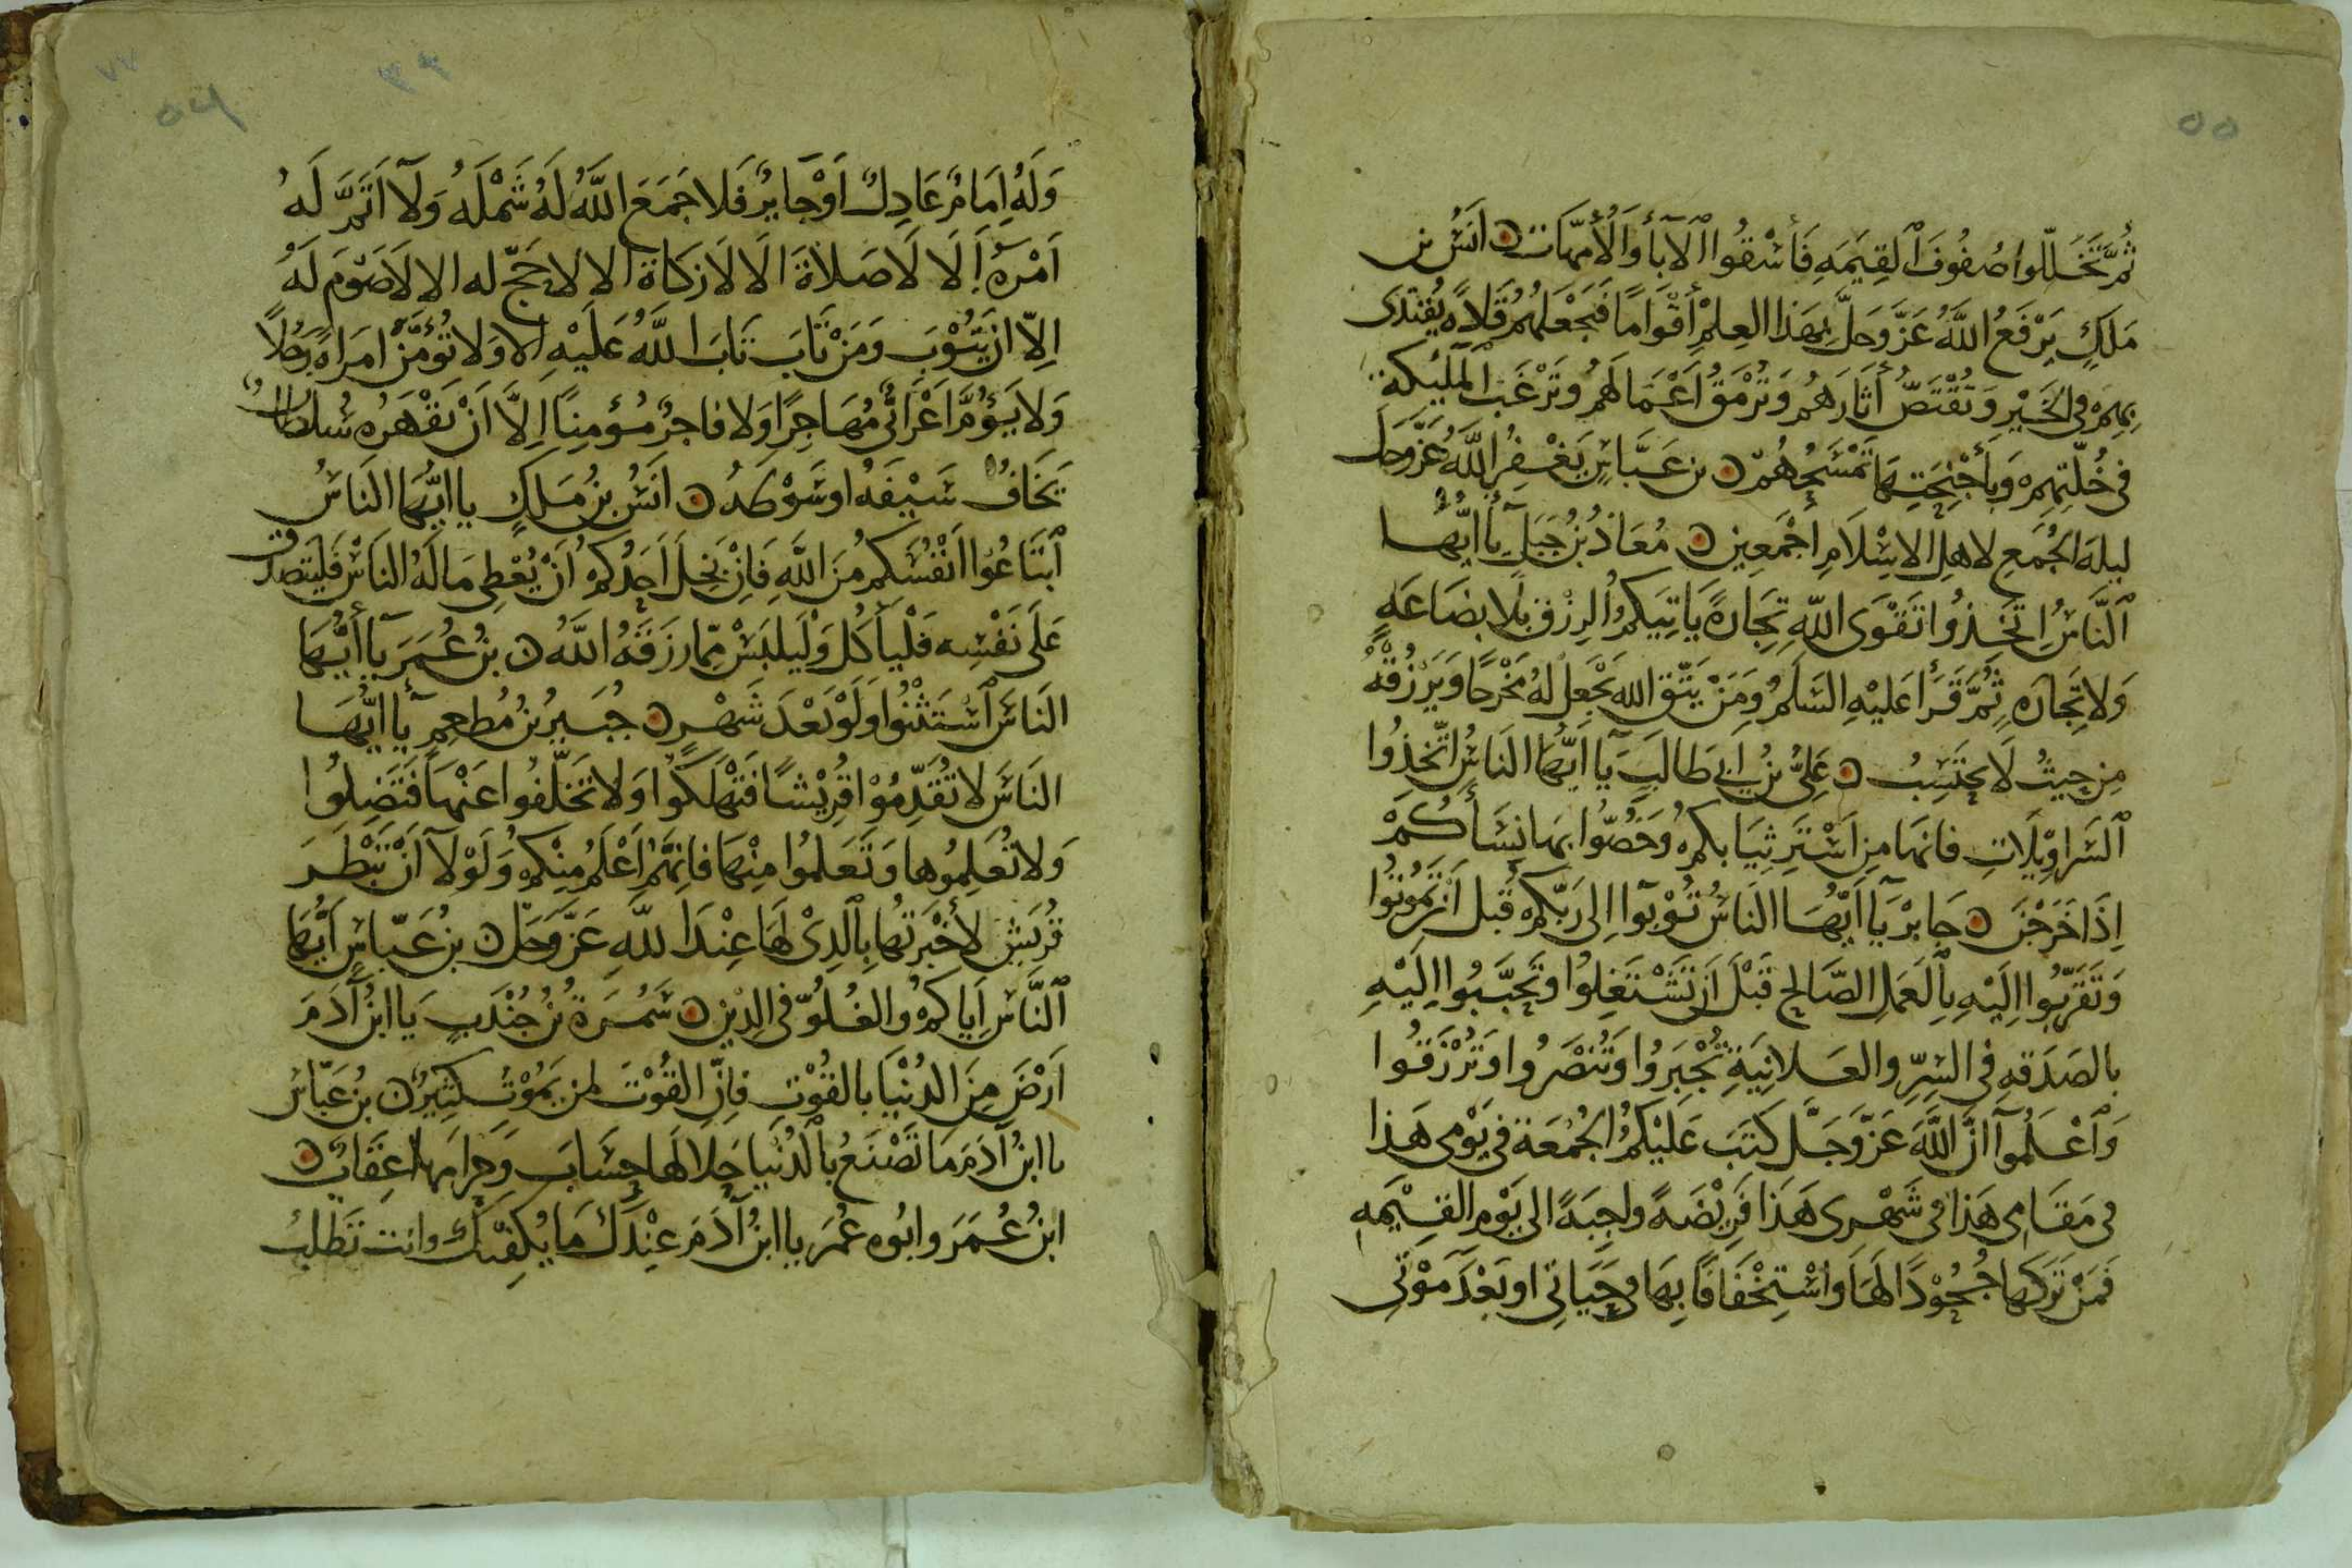 ٥٥
ثُمَّ تَخَلَّلُوا صُفُوفَ الْقِيَمَهِ فَأَسْقُوا الْآبَأَ وَالْأُمَّهَاتِ ں انَسُ بن
مَلَكٍ يَرْفَعُ اللَّهُ عَزَّ وَجَلَّ بِهَذا العِلْمِ أَقْوَامًا فَيَجْعَلُهُمْ قَلاَه يُقْتَدَى
بِهِمْ فِى الخَيْرِ وَتُقْتَصُّ أَثَارَهُم وَتُرْمَقُ أَعْمَالَهُم وَتَرْغَبُ الْمَلَيِكَة
فى خُلَّتِهِم وَبِأَجْنِحَتِهَا تَمْسَحُهُم ں بن عَبَّاسٍ يَغْفِرُ اللَّهُ عَزَّ وَجَلَّ
ليلهَ الجُمَعِ لاهلِ الاسْلَامِ أَجْمَعِين ں مُعَاذُ بْنُ جَبَلٍ يَأ ايُّهَا
النَّاسُ اِتَّخِذُوا تَقْوَى اللَّهِ تِجَارهً يَاتِيَكمُ الرِزْق بَلَا بضَاعَهٍ
وَلا تِجَارَهٍ ثُمَّ قَرَأَ عَليْهِ السَلَمُ وَمَنْ يَتَّقِ الله يَجْعَل لَهُ مَخْرَجًا وَيَرْزُقْهُ
مِن حيثُ لَا يحتَسِبُ ں عَلِىُّ بن ابى طالِبٍ يَا أيُّهَا النَاسُ اتَّخِذُوا
السَرَاوِيْلَاتِ فانهَا مِن اَسْتَرِ ثِيَابكم وَحَصِّنُوا بهَا نِسَأَكُمْ
اِذَا خَرَجْنَ ں جَابرْ يَا أَيُّهَا النَاسُ تُوْبُوا اِلى رَبِّكم قَبل اَن تَمُوتُوا
وَتَقَرَّبُوا اِلَيْهِ بِالعَمَلِ الصَّالحِ قَبْلَ اَن تَشْتَغِلوُا وَتَحَبَّبُوا اِلَيْهِ
بالصَدَقهِ فى السِرِّ والعَلانِيَةِ تُجْبَرُوا وَتُنْصَرُوا وَتُرْزَقُوا
وَاَعْلَمُوآ انَّ اللَّهَ عَزَّ وَجَلَّ كَتَبَ عَليْكمُ الجُمُعَة فى يَوْمى هَذا
فى مَقَامِى هَذا فى شَهْرِى هَذَا فَرِيْضَهً واجِبَهً الى يَوْمِ القِيَمَهِ
فَمَنْ تَرَكَهَا جُحُوْدًا لَهَا وَاسْتِخْفَافًا بِهَا فى حَيَاتِى اوبَعْدَ مَوْتى
وَلَهُ اِمَامٌ عَادِلٌ اَوْجَايرٌ فَلا جَمَعَ اللَّهُ لَهُ شَمْلَهُ وَلَآ اَتَمَّ لَهُ
اَمْرَهُ اَلَا لَا صَلَاةَ الَا لَا زكَاةَ الا لا حَجّ له الا لَا صَوْمَ لَهُ
اِلّا ان يَتُوْبَ وَمَنْ تَابَ تَابَ اللَّهُ عَلَيْهِ الا وَلا تَؤُمَّنَّ امرَاهٌ رَجُلًا
وَلا يَؤُمَّ اَعْرَابىٌّ مُهَاجِرًا وَلا فاجرٌ مُؤمِنًا اِلَّا اَنْ يَقْهَرَه سُلطانٌ
يَخَافُ سَيْفَهُ اوسَوْطَهُ ں انَسُ بنُ مَلَكٍ يا ايُّهَا النَاسُ
اَبْتَاعُوا انْفُسَكم مِنَ اللَّهِ فَاِن بَخِلَ اَحَدُكم اَنْ يُعْطِى مَالَهُ النَاسَ فَليَتَصَدَّق
عَلَى نَفْسِه فَلْيَأكُل وَلْيَلبَسْ مِمّا رزَقَهُ اللَّهُ ں بنُ عُمَرَ يَا أَيُّهَا
النَاسُ اسْتَثْنُوا وَلَوْ بَعْدَ شَهْرٍ ں جُبَيرُ بنُ مُطعِمٍ يآ ايُّهَا
النَاسُ لا تُقَدِّمُوْا قُرَيْشًا فَتَهْلَكُوا وَلا تَخَلَّفُوا عَنْهَا فَتَضِلُوا
وَلا تُعَلِمُوهَا وَتَعَلمُوا مِنْهَا فانِهَّم اَعْلَمُ مِنْكم وَلَوْلَآ اَنْ تَبْطَرَ
قُرَيش لأَخْبَرْتَهَا بِالَّذِىْ لَهَا عِنْدَ اللَّهِ عَزَّ وَجَلَّ ں بن عَبّاسٍ اَيُّهَا
النَّاسُ اِيَاكم وَالغُلُوّ فى الدِيْنِ ں سَمُرَةُ بْنُ جُنْدَبٍ يَا ابنَ آدَمَ
اَرْضَ مِنَ الدُنْيَا بالقُوْتِ فاِنَّ القُوْتَ لمن يَمُوْتُ كَثِيْرٌ ں بنُ عَبّاسٍ
يا ابنَ آدَمَ مَا تَصْنَعُ بالْدُنْيَا حَلالهَا حِسَابَ وَحَرامهَا عِقَابٌ ں
ابنُ عُمَرَ وابُوه عُمَرَ يا ابنَ آدَمَ عِنْدَكَ مَا يُكفِيْكَ وانت تَطْلبُ